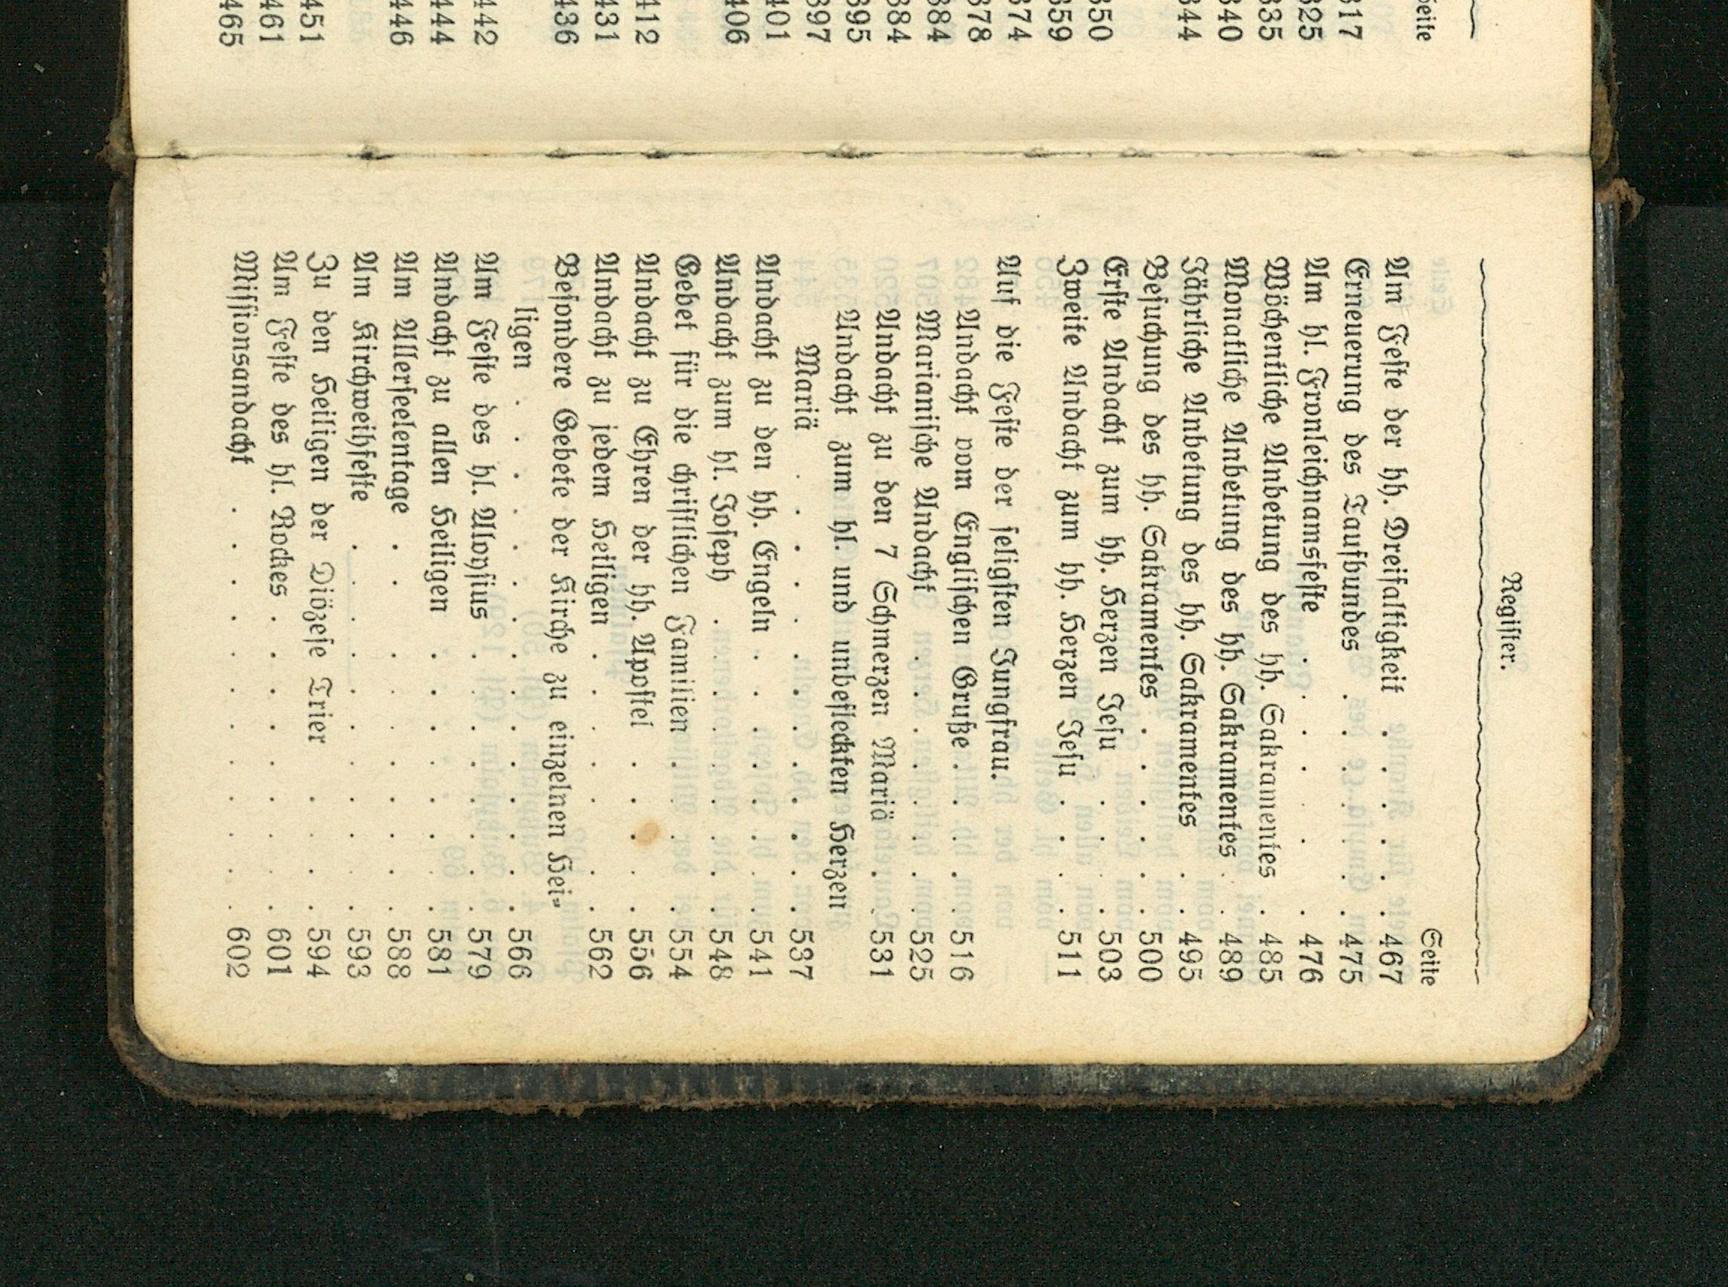 Seite
317
325
335
340
344
350
359
374
378
384
384
395
397
401
406
412
431
436
442
444
446
451
461
465
Register.
Seite
Am Feste der hh. Dreifaltigkeit . . . . . 467
Erneuerung des Taufbundes . . . . . . 475
Am hl. Fronleichnamsfeste . . . . . . 476
Wöchentliche Anbetung des hh. Sakramentes . 485
Monatliche Anbetung des hh. Sakramentes . . 489
Jährliche Anbetung des hh. Sakramentes . . 495
Besuchung des hh. Sakramentes . . . . . 500
Erste Andacht zum hh. Herzen Jesu . . . . 503
Zweite Andacht zum hh. Herzen Jesu . . . . 511
Auf die Feste der seligsten Jungfrau.
Andacht vom Englischen Gruße . . . . . 516
Marianische Andacht . . . . . . . 525
Andacht zu den 7 Schmerzen Mariä . . . 531
Andacht zum hl. und unbefleckten Herzen
Mariä . . . . . . . . . . . 537
Andacht zu den hh. Engeln . . . . . . . 541
Andacht zum hl. Joseph . . . . . . . . 548
Gebet für die christlichen Familien . . . . . 554
Andacht zu Ehren der hh. Apostel . . . . . 556
Andacht zu jedem Heiligen . . . . . . . 562
Besondere Gebete der Kirche zu einzelnen Hei-
ligen . . . . . . . . . . . . . 566
Am Feste des hl. Aloysius . . . . . . . 579
Andacht zu allen Heiligen . . . . . . . 581
Am Allerseelentage . . . . . . . . . 588
Am Kirchweihfeste . . . . . . . . . . 593
Zu den Heiligen der Diözese Trier . . . . 594
Am Feste des hl. Rockes . . . . . . . . 601
Missionsandacht . . . . . . . . . . 602